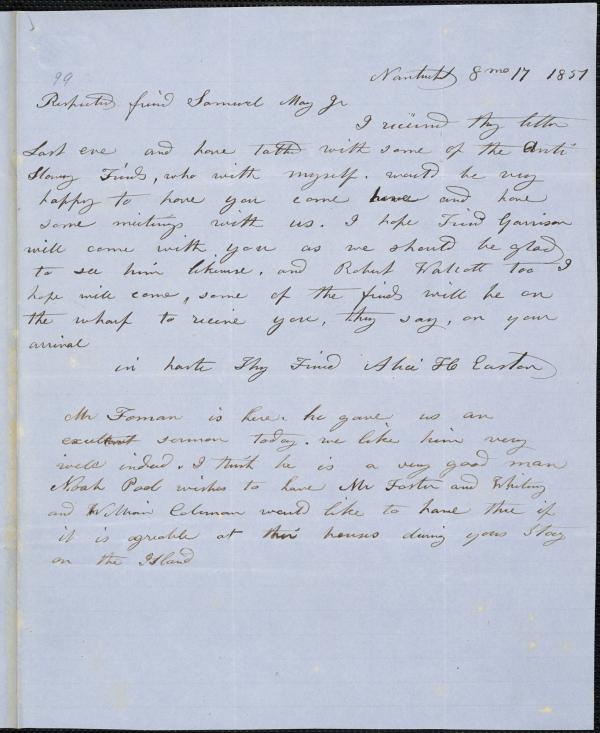 99
Nantucket 8mo 17 1851
Respected friend Samuel May Jr
I received thy letter
Last eve and have talked with some of the Anti
Slavery Friends, who with myself. would be very
happy to have you come have and have
some meetings with us. I hope Friend Garrison
will come with you as we should be glad
to see him likewise. and Robert Walcott too I
hope will come, some of the friends will be on
the wharf to receive you, they say, on your
arrival
in haste Thy Friend Alice H Easton
Mr Foman is here. he gave us an
excellent sermon today. we like him very
well indeed. I think he is a very good man
Noah Pool wishes to have Mr Foster and Whiting
and William Coleman would like to have thee if
it is agreable at their houses during your Stay
on the Island